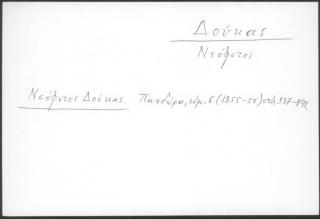 Δούκας
Νεόφυτος.
Νεόφυτος Δούκας. Πανδώρα, τόμ. 6 (1855-56) σελ. 137-191.